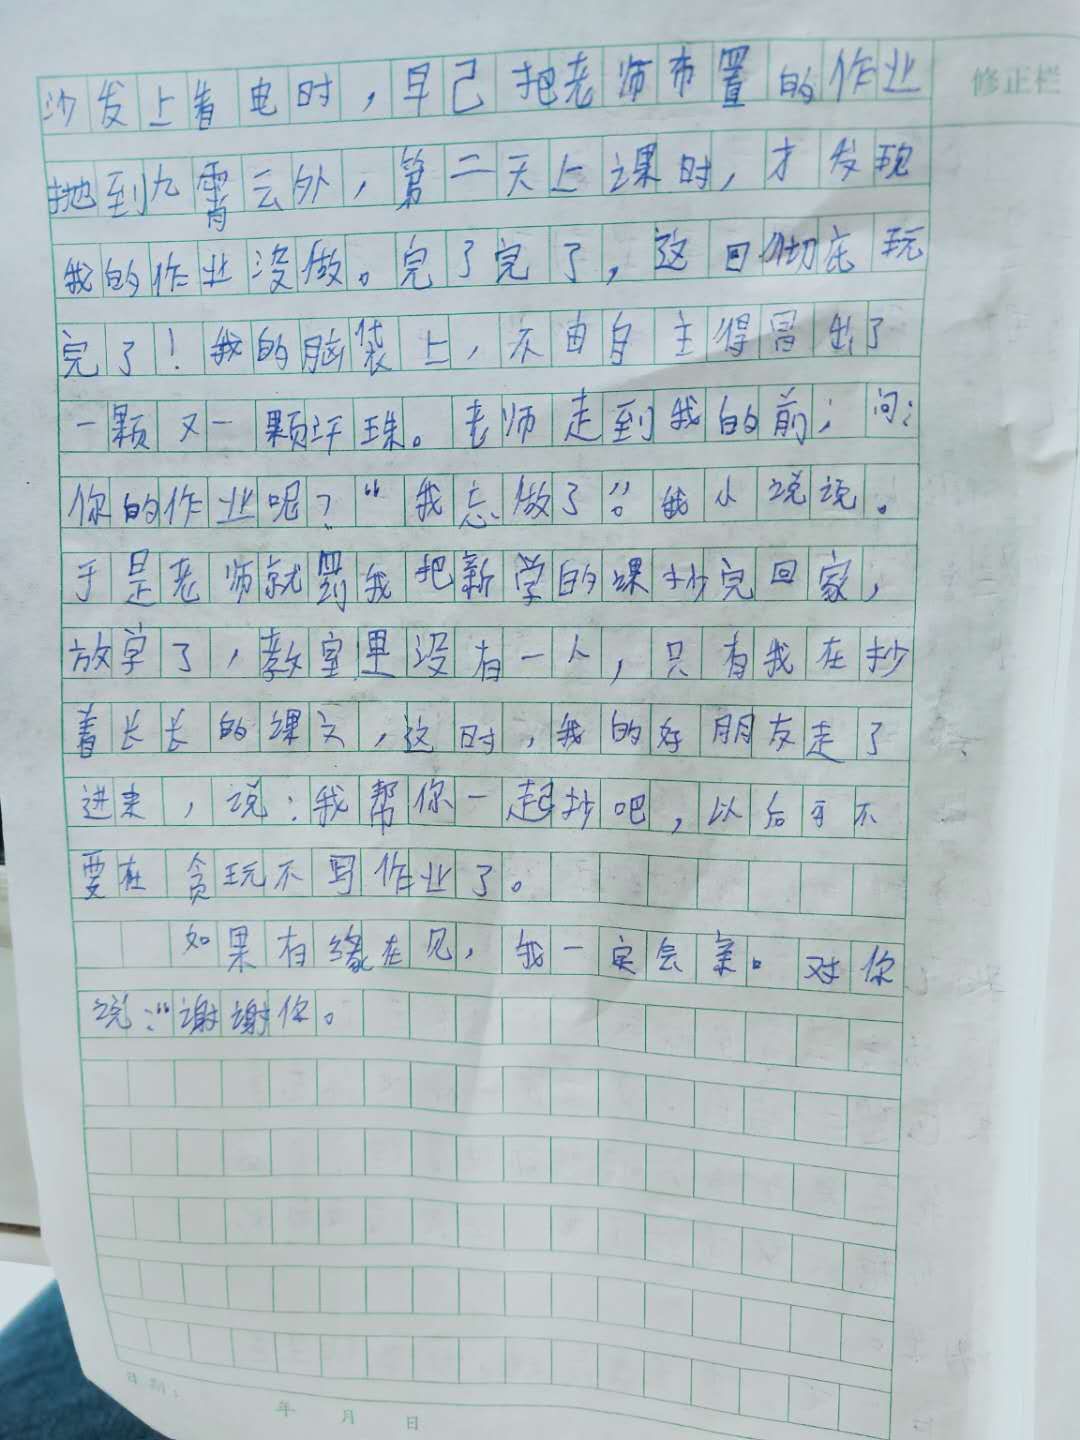 沙发上看电时，早己把老师布置的作业
修正栏
抛到九霄云外，第二天上课时，才发现
我的作业没做。完了完了，这回彻底玩
完了！我的脑袋上，不由自主得冒出了
一颗又一颗汗珠。老师走到我的前；问：
你的作业呢？“我忘做了”。我小说说。
于是老师就罚我把新学的课抄完回家，
放学了，教室里没有一人，只有我在抄
着长长的课文，这时，我的好朋友走了
进来，说：我帮你一起抄吧，以后可不
要在贪玩不写作业了。
如果有缘在见，我一定会亲。对你
说：“谢谢你。
日期：
年 月 日